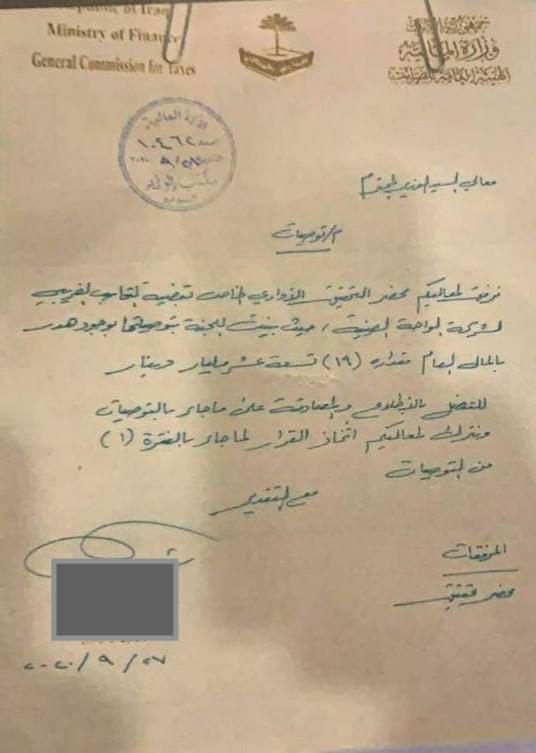 Republic of Iraq
Ministry of Finance
General Commission for Taxes
جمهورية العراق
وزارة المالية
الهيئة العامة للضرائب
وزارة المالية
١٠٤٦٢
٢٠٢٠ ٩/٢٨
مكتب الوزير
معالي السيد الوزير المحترم
م/توصيات
نرفق لمعاليكم محضر التحقيق الإداري الخاص بقضية التحاسب الضريبي
لشركة الواحة الصينية، حيث بينت اللجنة بتوصيتها بوجود هدر
بالمال العام مقداره (١٩) تسعة عشر مليار دينار
للتفضل بالإطلاع والمصادقة على ماجاء بالتوصيات
ونترك لمعاليكم أتخاذ القرار لما جاء بالفقرة (١)
من التوصيات
مع التقدير
المرفقات
محضر تحقيق
٢٠٢٠/٩/٢٧